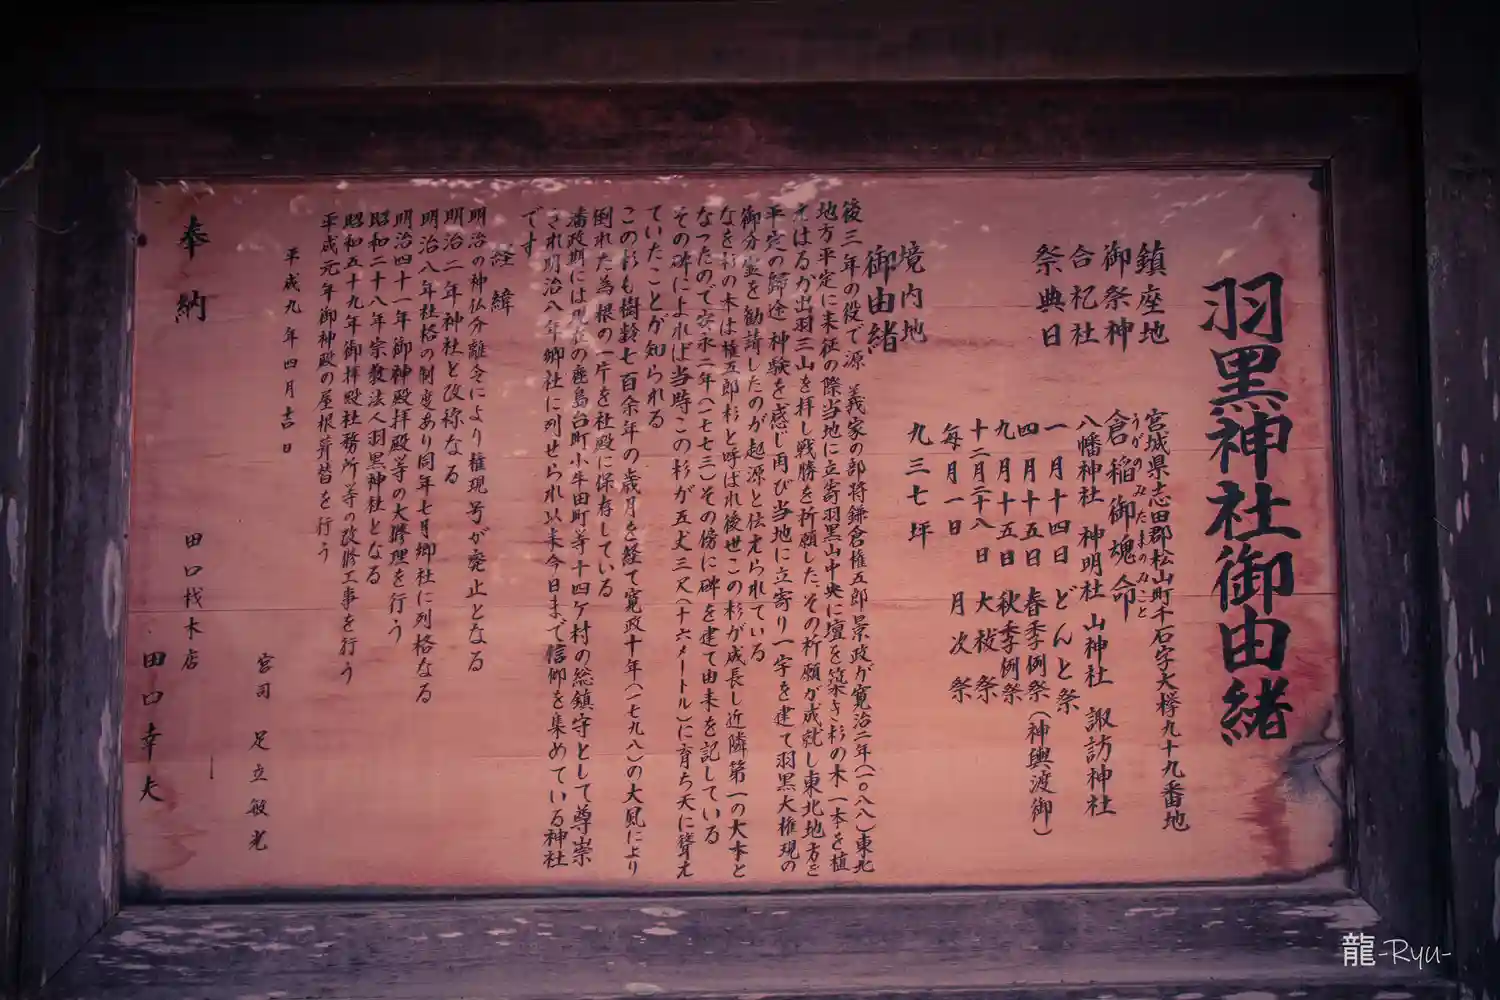 羽黒神社御由緒
鎮座地 宮城県志田郡松山町千石字大欅九十九番地
御祭神 倉稲御魂命
うがのみたまのみこと
合祀社 八幡神社 神明社 山神社 諏訪神社
祭典日 一月十四日 どんと祭
四月十五日 春季例祭(神輿渡御)
九月十五日 秋季例祭
十二月二十八日 大祓祭
毎月一日 月次祭
境内地 九三七坪
御由緒
後三年の役で源 義家の部将鎌倉権五郎景政が寛治二年(一〇八八)東北
地方平定に来征の際当地に立寄羽黒山中央に壇を築き杉の木一本を植
えはるか出羽三山を拝し戦勝を祈願した、その祈願が成就し東北地方を
平定の帰途、神験を感じ再び当地に立寄り一宇を建て羽黒大権現の
御分霊を勧請したのが起源と伝えられている
なを杉の木は権五郎杉と呼ばれ後世この杉が成長し近隣第一の大木と
なったので安永二年(一七七三)その傍に碑を建て由来を記している
その碑によれば当時この杉が五丈三尺(十六メートル)に育ち天に聳え
ていたことが知られる
この杉も樹齢七百余年の歳月を経て寛政十年(一七九八)の大風により
倒れた為根の一片を社殿に保存している
藩政期には現在の鹿島台町小牛田町等十四ケ村の総鎮守として尊崇
され明治八年郷社に列せられ以来今日まで信仰を集めている神社
です
経緯
明治の神仏分離令により権現号が廃止となる
明治二年神社と改称なる
明治八年社格の制度あり同年七月郷社に列格なる
明治四十一年御神殿拝殿等の大修理を行う
昭和二十八年宗教法人羽黒神社となる
昭和五十九年御拝殿社務所等の改修工事を行う
平成元年御神殿の屋根葺替を行う
平成九年四月吉日
宮司 足立敏光
奉納 田口材木店
田口幸夫
龍-Ryu-